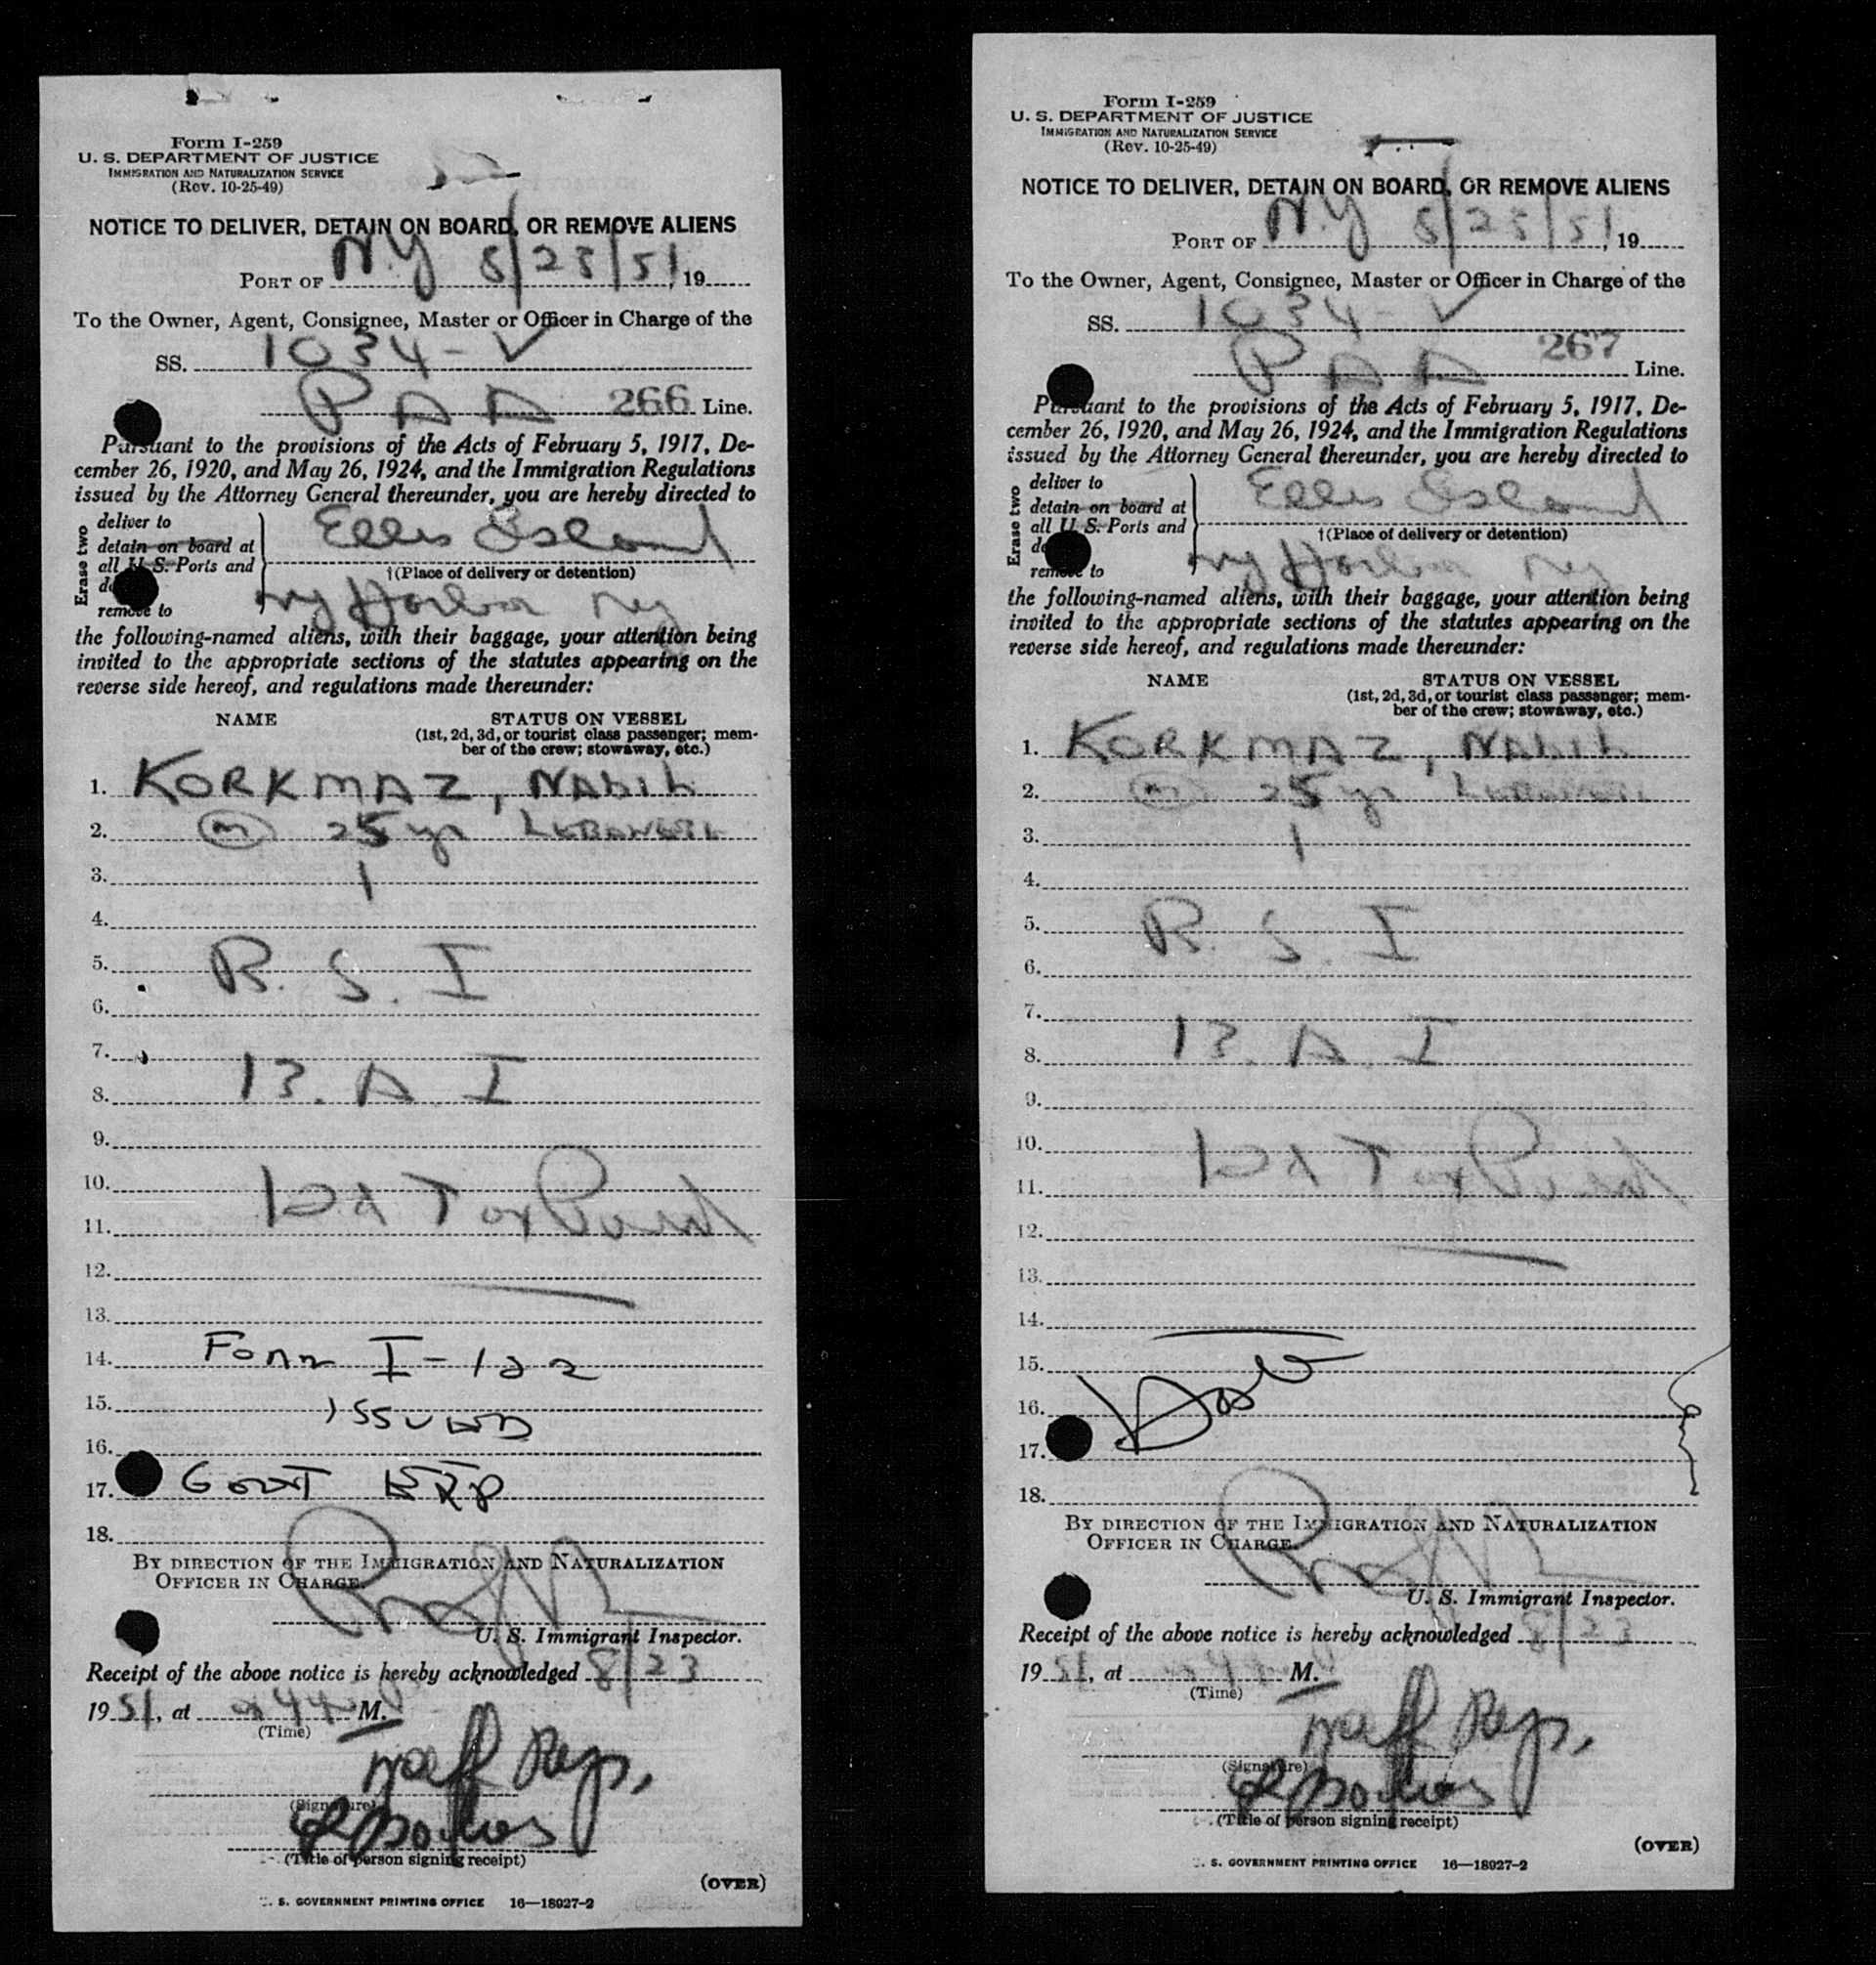 Form I-259
U. S. DEPARTMENT OF JUSTICE
IMMIGRATION AND NATURALIZATION SERVICE
(Rev. 10-25-49)
NOTICE TO DELIVER, DETAIN ON BOARD, OR REMOVE ALIENS
PORT OF N.Y 8/23/51, 19
To the Owner, Agent, Consignee, Master or Officer in Charge of the
SS. 1034-V
PAA 266 Line.
Pursuant to the provisions of the Acts of February 5, 1917, De-
cember 26, 1920, and May 26, 1924, and the Immigration Regulations
issued by the Attorney General thereunder, you are hereby directed to
Erase two
deliver to
detain on board at
all U. S. Ports and
remove to
Ellis Island
†(Place of delivery or detention)
NY Harbor NY
the following-named aliens, with their baggage, your attention being
invited to the appropriate sections of the statutes appearing on the
reverse side hereof, and regulations made thereunder:
NAME
STATUS ON VESSEL
(1st, 2d, 3d, or tourist class passenger; mem-
ber of the crew; stowaway, etc.)
1. KORKMAZ, NADIL
2. M 25 yr
3. 1
4.
5. R. S. I
6.
7.
8. 13. A. I
9.
10.
11.
12.
13.
14. Form I-122
15. ISSUED
16.
17. GOVT EXP
18.
BY DIRECTION OF THE IMMIGRATION AND NATURALIZATION
OFFICER IN CHARGE.
U. S. Immigrant Inspector.
Receipt of the above notice is hereby acknowledged 8/23
19 51, at M.
(Time)
(Signature)
(Title of person signing receipt)
(OVER)
U. S. GOVERNMENT PRINTING OFFICE 16—18927-2
Form I-259
U. S. DEPARTMENT OF JUSTICE
IMMIGRATION AND NATURALIZATION SERVICE
(Rev. 10-25-49)
NOTICE TO DELIVER, DETAIN ON BOARD, OR REMOVE ALIENS
PORT OF N.Y 8/23/51, 19
To the Owner, Agent, Consignee, Master or Officer in Charge of the
SS. 1034-V
PAA 267 Line.
Pursuant to the provisions of the Acts of February 5, 1917, De-
cember 26, 1920, and May 26, 1924, and the Immigration Regulations
issued by the Attorney General thereunder, you are hereby directed to
Erase two
deliver to
detain on board at
all U. S. Ports and
remove to
Ellis Island
†(Place of delivery or detention)
NY Harbor NY
the following-named aliens, with their baggage, your attention being
invited to the appropriate sections of the statutes appearing on the
reverse side hereof, and regulations made thereunder:
NAME
STATUS ON VESSEL
(1st, 2d, 3d, or tourist class passenger; mem-
ber of the crew; stowaway, etc.)
1. KORKMAZ, NADIL
2. M 25 yr
3. 1
4.
5. R. S. I
6.
7.
8. 13. A. I
9.
10.
11.
12.
13.
14.
15.
16.
17.
18.
BY DIRECTION OF THE IMMIGRATION AND NATURALIZATION
OFFICER IN CHARGE.
U. S. Immigrant Inspector.
Receipt of the above notice is hereby acknowledged 8/23
19 51, at M.
(Time)
(Signature)
(Title of person signing receipt)
(OVER)
U. S. GOVERNMENT PRINTING OFFICE 16—18927-2